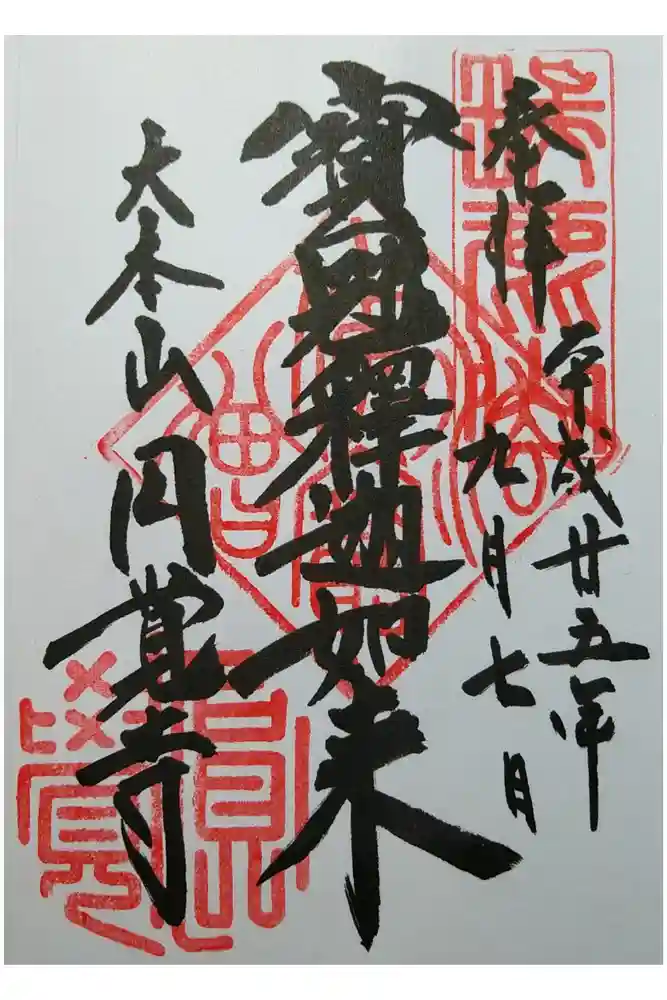 奉拝
平成廿五年
九月七日
寶冠釋迦如来
大本山円覚寺